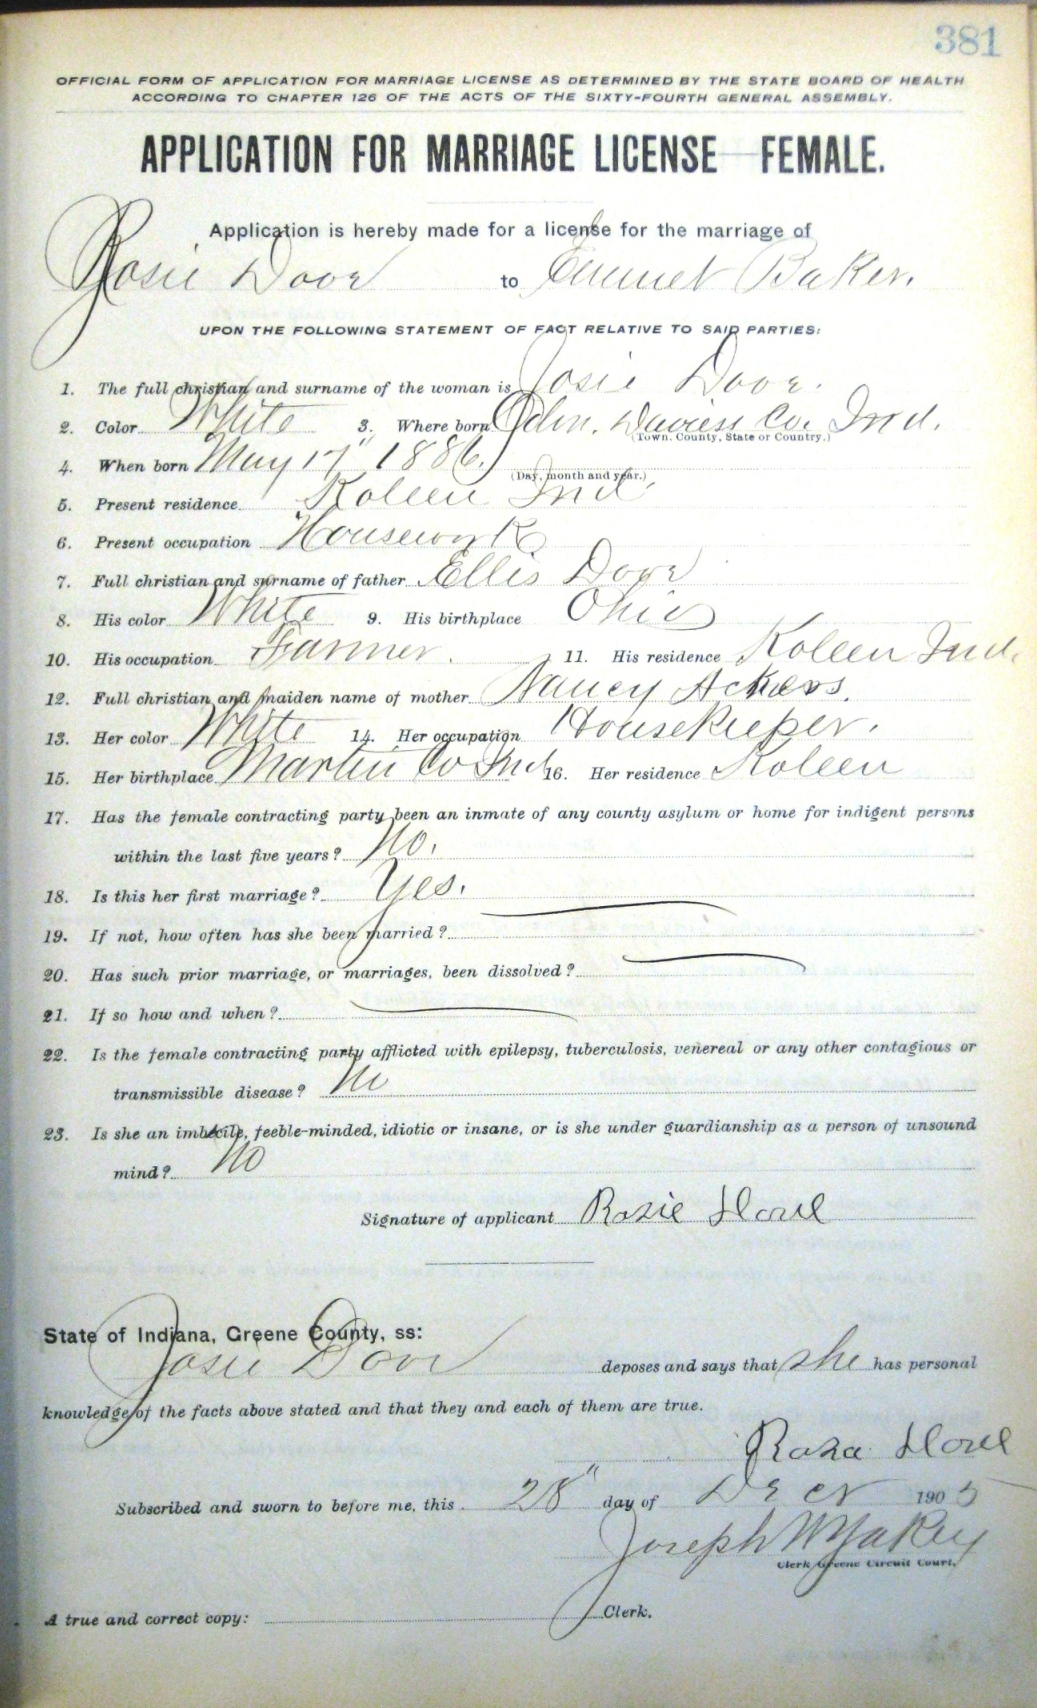 381
OFFICIAL FORM OF APPLICATION FOR MARRIAGE LICENSE AS DETERMINED BY THE STATE BOARD OF HEALTH
ACCORDING TO CHAPTER 126 OF THE ACTS OF THE SIXTY-FOURTH GENERAL ASSEMBLY.
APPLICATION FOR MARRIAGE LICENSE FEMALE.
Application is hereby made for a license for the marriage of
Rosie Dove to Emmet Baker.
UPON THE FOLLOWING STATEMENT OF FACT RELATIVE TO SAID PARTIES:
1. The full christian and surname of the woman is Rosie Dove.
2. Color White 3. Where born Odon. Daviess Co. Ind.
(Town, County, State or Country.)
4. When born May 17" 1886.
(Day, month and year.)
5. Present residence Koleen Ind.
6. Present occupation Housework
7. Full christian and surname of father Ellis Dove
8. His color White 9. His birthplace Ohio
10. His occupation Farmer. 11. His residence Koleen Ind.
12. Full christian and maiden name of mother Nancy Ackers.
13. Her color White 14. Her occupation Housekeeper.
15. Her birthplace Martin Co Ind 16. Her residence Koleen
17. Has the female contracting party been an inmate of any county asylum or home for indigent persons
within the last five years? No.
18. Is this her first marriage? Yes.
19. If not, how often has she been married?
20. Has such prior marriage, or marriages, been dissolved?
21. If so how and when?
22. Is the female contracting party afflicted with epilepsy, tuberculosis, venereal or any other contagious or
transmissible disease? No
23. Is she an imbecile, feeble-minded, idiotic or insane, or is she under guardianship as a person of unsound
mind? No
Signature of applicant Rosie Dove
State of Indiana, Greene County, ss:
Rosie Dove deposes and says that she has personal
knowledge of the facts above stated and that they and each of them are true.
Rosa Dove
Subscribed and sworn to before me, this 28" day of Decr 1905
Joseph W Yakey
Clerk Greene Circuit Court.
A true and correct copy: Clerk.